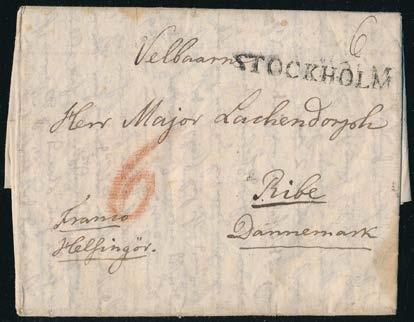 6
Velbaarne STOCKHOLM
Herr Major Lachendorph
6
Ribe
Franco
Dännemark
Helsingör.